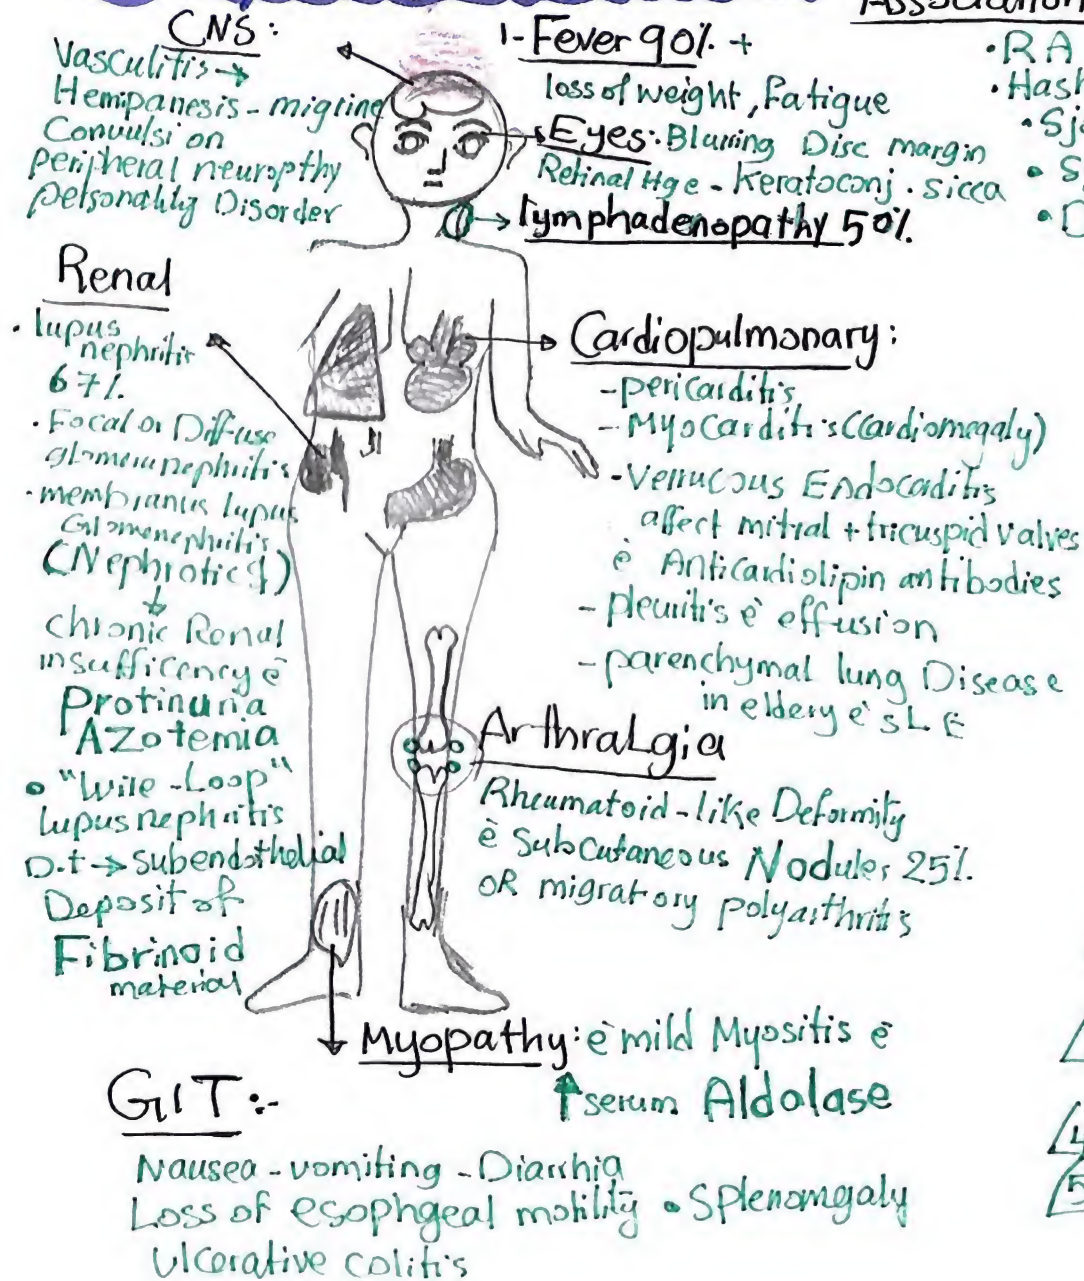 Association
CNS:
Vasculitis →
Hemipanesis - migrine
Convulsion
peripheral neuropthy
personality Disorder
1- Fever 90% +
loss of weight, Fatigue
Eyes: Blurring Disc margin
Retinal Hge - Keratoconj. sicca
lymphadenopathy 50%
• RA
• Hash
• Sjo
• S
• D
Renal
• lupus
nephritis
67%
• Focal or Diffuse
glomerunephritis
• membranus lupus
Glomenephritis
(Nephrotic
↓
chronic Renal
insufficency ē
Protinuria
AZotemia
• "Wire-Loop"
lupus nephritis
D.t → subendothelial
Deposit of
Fibrinoid
material
Cardiopulmonary:
- pericarditis
- Myocarditis (Cardiomegaly)
- Verrucous Endocarditis
affect mitral + tricuspid valves
ē Anticardiolipin antibodies
- pleuritis ē effusion
- parenchymal lung Disease
in eldery ē SLE
ArthraLgia
Rheumatoid-like Deformity
ē Subcutaneous Nodules 25%
OR migratory polyarthritis
Myopathy: ē mild Myositis ē
↑ serum Aldolase
GIT:-
Nausea - vomiting - Diarrhia
Loss of esophgeal motility • Splenomgaly
Ulcerative colitis
4
5